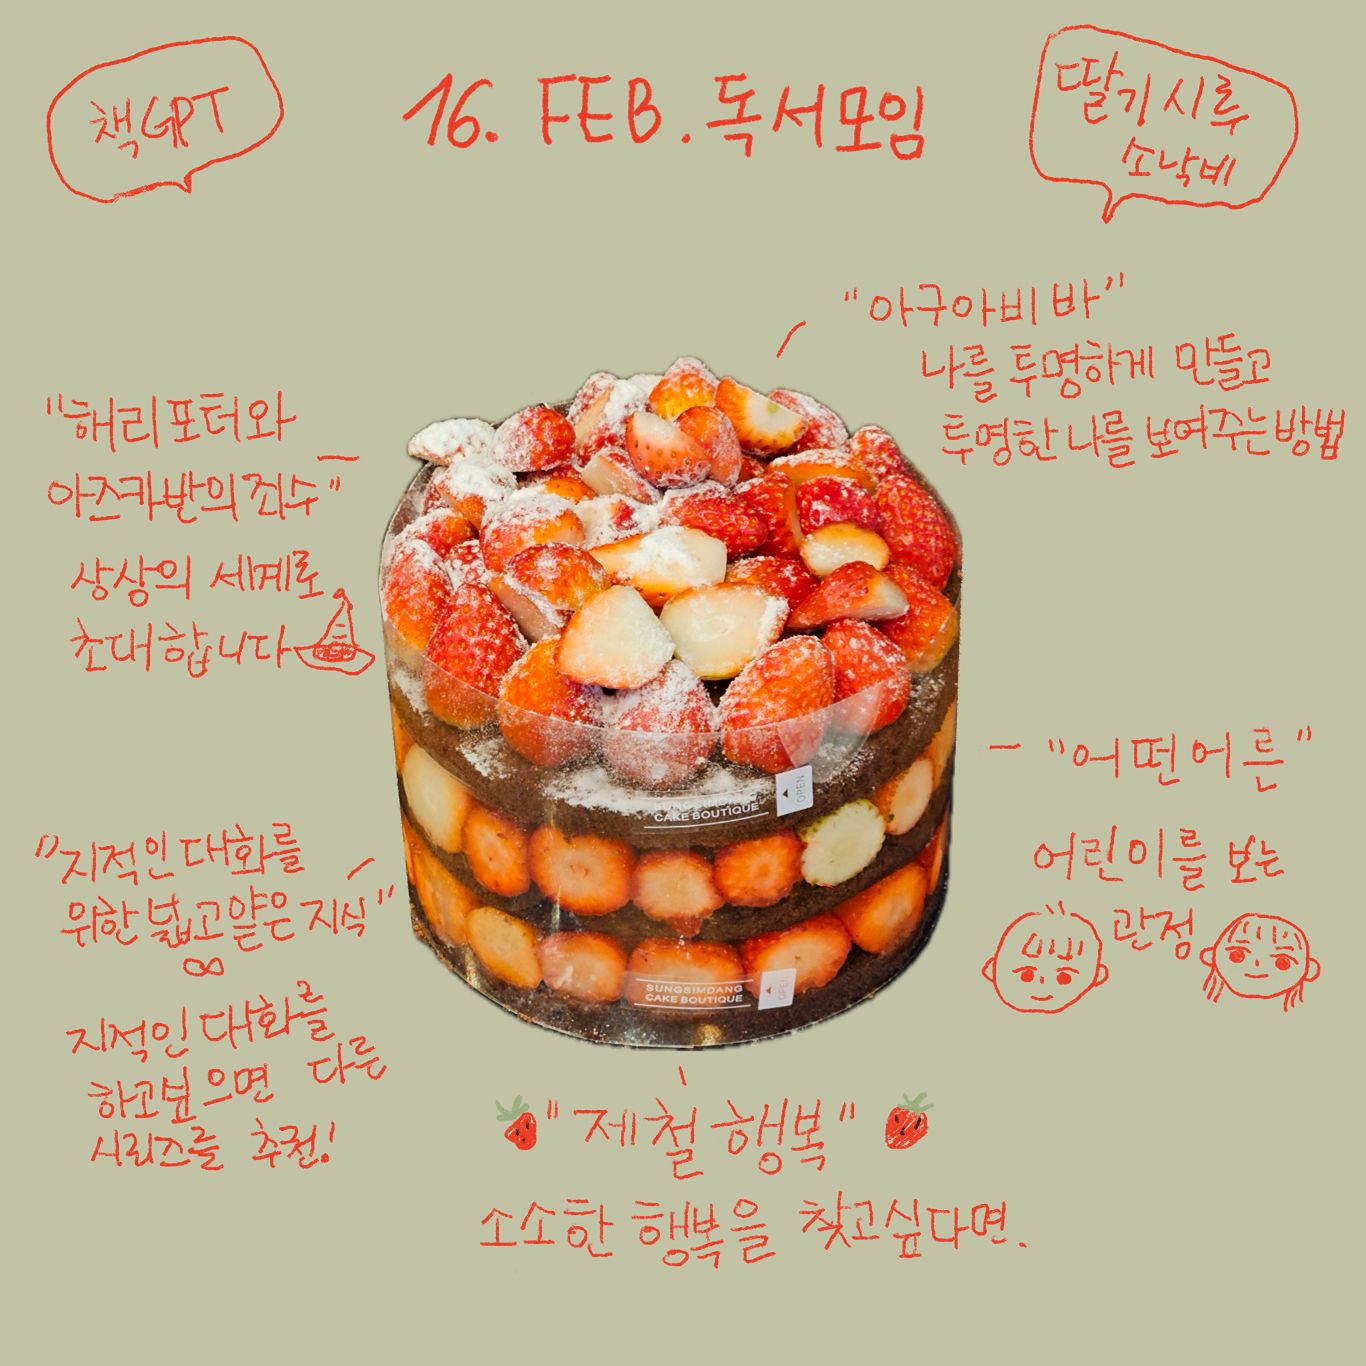 책GPT
16. FEB. 독서모임
딸기시루
소낙비
"아구아비바"
나를 투명하게 만들고
투명한 나를 보여주는 방법
"해리포터와
아즈카반의 죄수"
상상의 세계로
초대합니다
SUNGSIMDANG
CAKE BOUTIQUE
OPEN
"어떤 어른"
어린이를 보는
관점
"지적인 대화를
위한 넓고 얕은 지식"
∞
지적인 대화를
하고싶으면 다른
시리즈를 추천!
SUNGSIMDANG
CAKE BOUTIQUE
OPEN
"제철 행복"
소소한 행복을 찾고싶다면.